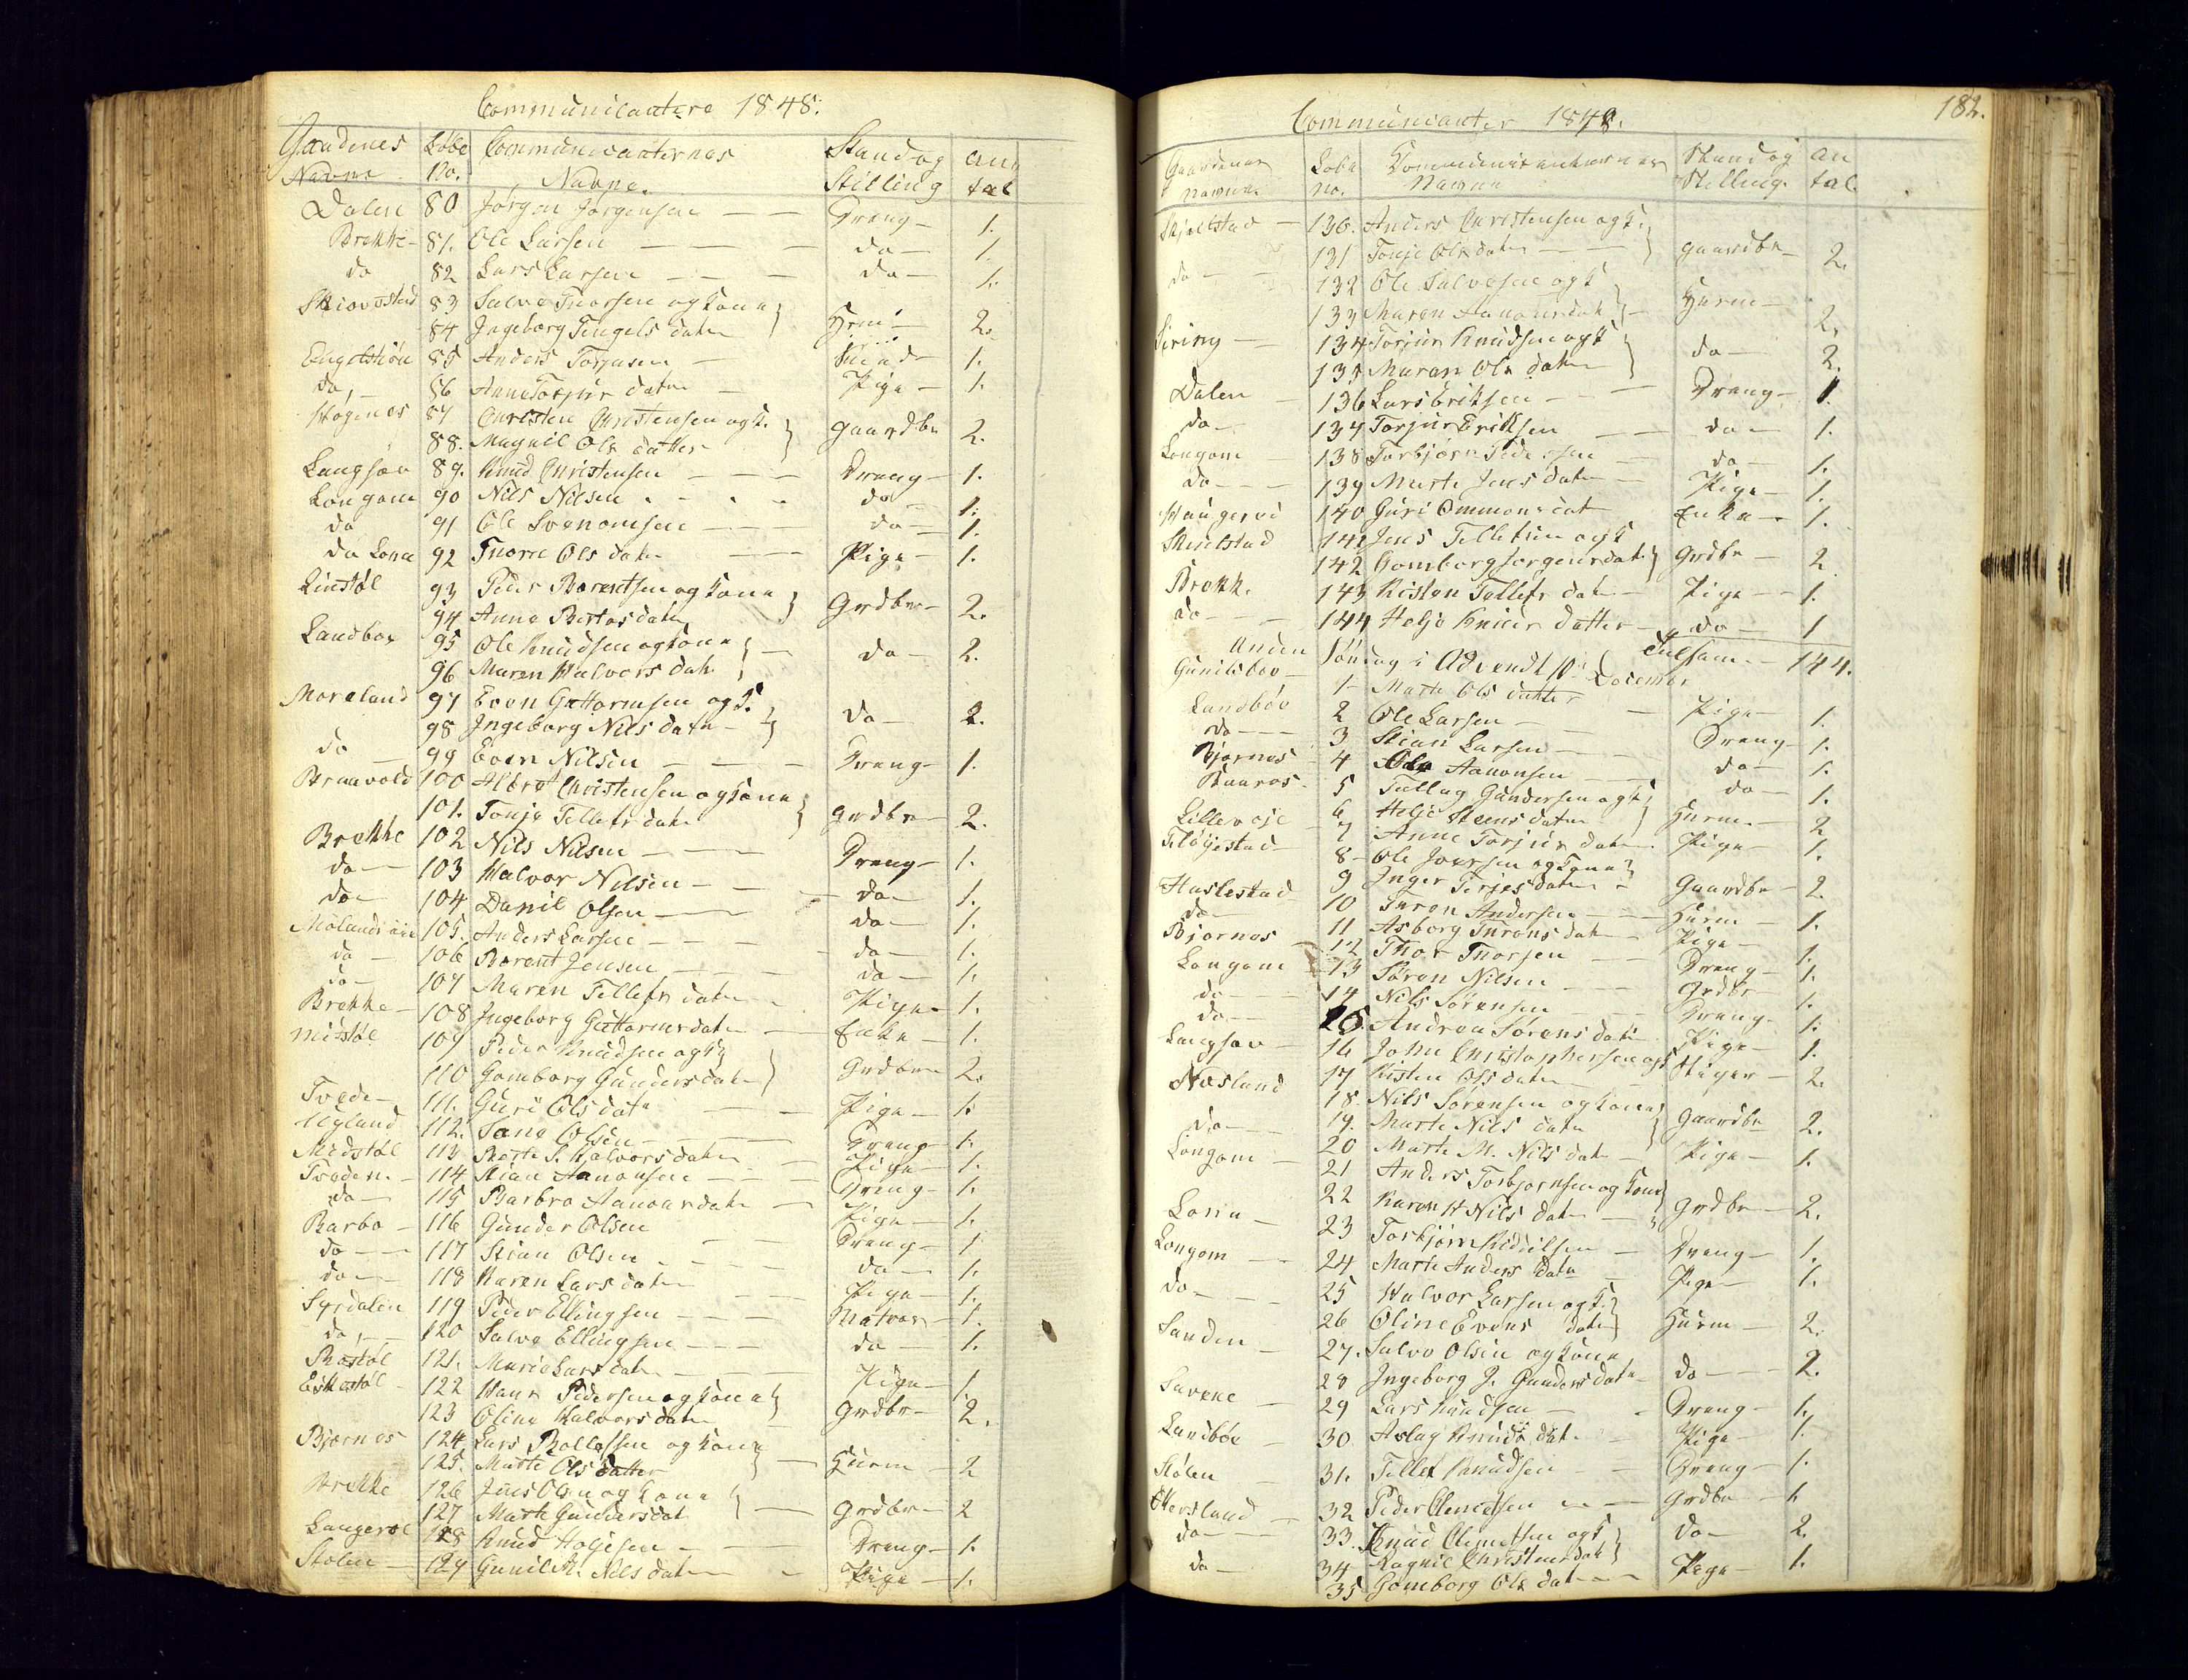 Communicantere 1848.
Gaardenes Løbe Communicanternes Stand og An
Navne No. Navne. Stilling tal
Dalen 80 Jørgen Jørgensen — — Dreng — 1.
Brekke — 81. Ole Larsen — — — do — 1.
do 82 Lars Larsen — — — do — 1.
83 Salve Thorsen og Kone }
84 Ingeborg Tengels dater } Hrm — 2.
85 Anders Torjusen — 1.
do, — 86 Anne Torjus dater — Pige — 1.
87 Christen Christensen og K. }
88. Magnil Ols datter } gaardbr 2.
Langsæv 89. Knud Christensen — — Dreng — 1.
Longom 90 Nils Nilsen - - - - do — 1.
do 91 Ole Svenomsen — — do — 1.
do Lona 92 Thorre Ols dater — Pige — 1.
Linstøl 93 Peder Berentsen og Kone }
94 Anne Bertos dater } Grdbr — 2.
Landbøe 95 Ole Knudsen og Kone }
96 Maren Halvors date } — do — 2.
Moreland 97 Even Guttormsen og K. }
98 Ingeborg Nils dater — } do — 2.
do — 99 Even Nilsen — — — Dreng — 1.
Braavold 100 Albret Christensen og Kone }
101. Tonje Tellefs date } grdbr — 2.
Brekke 102 Nils Nilsen — — Dreng — 1.
do — 103 Halvor Nilsen — — do — 1.
do — 104 Danil Olsen — — do — 1.
105. Anders Larsen — — — do — 1.
do — 106 Berent Jensen — — — do — 1.
do — 107 Maren Tellefs dater — Pige — 1.
Brekke — 108 Ingeborg Guttormsdater — Enke — 1.
Midstøl 109 Peder Knudsen og K }
110 Gomborg Gunders date } Grdbr 2.
Tvede — 111. Guri Ols date — — Pige — 1.
Ugland 112. Tane Olsen — — — Dreng 1.
Midstøl 113 Marte S. Halvors dater — Pige — 1.
Tveden — 114 Stian Aanonsen — — — Dreng — 1.
do — 115 Barbro Aanonsdater — Pige — 1.
Barbo — 116 Gunder Olsen — — Dreng — 1
do — — 117 Stian Olsen — — — do — 1.
do — 118 Karen Lars dater — Pige — 1.
Syrdalen 119 Peder Ellingsen — — — Matros — 1.
do, — 120 Salve Ellingsen — — — do — 1.
Røstøl 121. Maria Lars dater — Pige — 1.
Eskestøl 122 Hans Pedersen og Kone }
123 Oline Halvors dater } Grdbr — 2.
Bjørnes 124. Lars Rollefsen og Kone }
125. Marte Ols datter } — Huusm — 2
Brekke 126 Jens Olsen og Kone }
127 Marte Gundersdat } — grdbr — 2
Langerøe 128 Knud Holjesen — — Dreng — 1.
Stølen — 129 Gunil A. Nils dater — Pige — 1.
182.
Communicanter 1848.
Gaardenes Løbe Kommunikanternes Stand og An
Navne No. Navne Stilling. tal.
Skjælstad — 130. Anders Christensen og K. }
131 Tonje Ols dater — — } gaardbr — 2.
do — 132 Ole Salvesen og K }
133 Maren Aanonsdat } — Huusm — 2.
134 Torjus Knudsen og K }
135 Maren Ols dater } do — 2.
Dalen — 136 Lars Eriksen — — Dreng — 1.
do — 137 Torjus Eriksen — — do — 1.
Longom — 138 Torbjørn Pedersen — do — 1.
do — — 139 Marte Jens dater — Pige — 1.
140 Guri Ommons dat Enke — 1.
Skielstad 141 Jens Tellefsen og K
142 Gomborg Jørgens dat } Grdbr — 2
Brekk. 143 Kisten Tellefs dat — Pige — 1.
do — — 144 Holje Knuds Datter — do — 1
Anden Søndag i Advendt 10. December Tilsam. — 144.
Gunilsbov — 1 — Marte Ols datter — Pige — 1.
Landbøv 2 Ole Larsen — Dreng — 1.
do — — 3 Stian Larsen — — do — 1.
Bjørnes 4 Ole Aanonsen — — do — 1.
Baaros — 5 Tallag Gundersen og K }
6 Holje Steens dater } Huusm — 2
Lilleveje — 7 Anne Torjus dater — Pige — 1.
Fløjestad — 8 — Ole Joersen og Kone }
9 Inger Terjesdater — Gaardbr — 2.
Haslestad 10 Toron Andersen — — Huusm — 1.
do — 11 Asborg Torons dat — Pige — 1.
Bjørnes 12 Thor Thorsen — — Dreng — 1.
Longom 13 Søren Nilsen — — Grdbr — 1.
do — — 14 Nils Sørensen — — Dreng — 1.
do — 15. Andrea Sørens date Pige — 1.
Langsæv — 16 John Christophersen og K
17 Kisten Ols dater — Stiger — 2.
Næsland 18. Nils Sørensen og Kone }
19. Marte Nils date } Gaardbr 2.
do — 20 Marte M. Nils dat — Pige — 1.
Longom — 21 Anders Torbjørnsen og Kone }
22 Karen H Nils dater — } Grdbr — 2.
Lona — 23 Torbjørn Kiddilsen — Dreng — 1.
Longom — 24 Marte Anders date Pige — 1.
do — — 25 Halvor Larsen og K. }
26 Oline Evens date } Huusm — 2.
Sanden — 27. Salve Olsen og Kone
28 Ingeborg J. Gunders date do — — 2.
29 Lars Knudsen — - Dreng — 1.
Landbøe — 30. Aslag Knuds dat — Pige — 1.
Stølen — 31. Tellef Knudsen — — Dreng — 1.
32 Peder Clemetsen — — Grdbr — 1
do — 33. Knud Clemetsen og K }
34 Ragnil Christens dat } do — 2.
do — 35 Gomborg Ols dat — — Pige — 1.